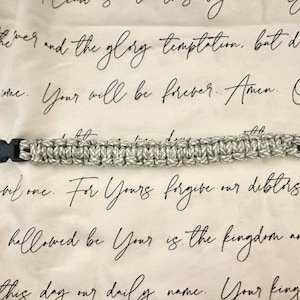 and the glory temptation, but d
Your will be forever. Amen.
one. For Yours forgive our debtors
hallowed be Your is the kingdom an
this day our daily name. Your king